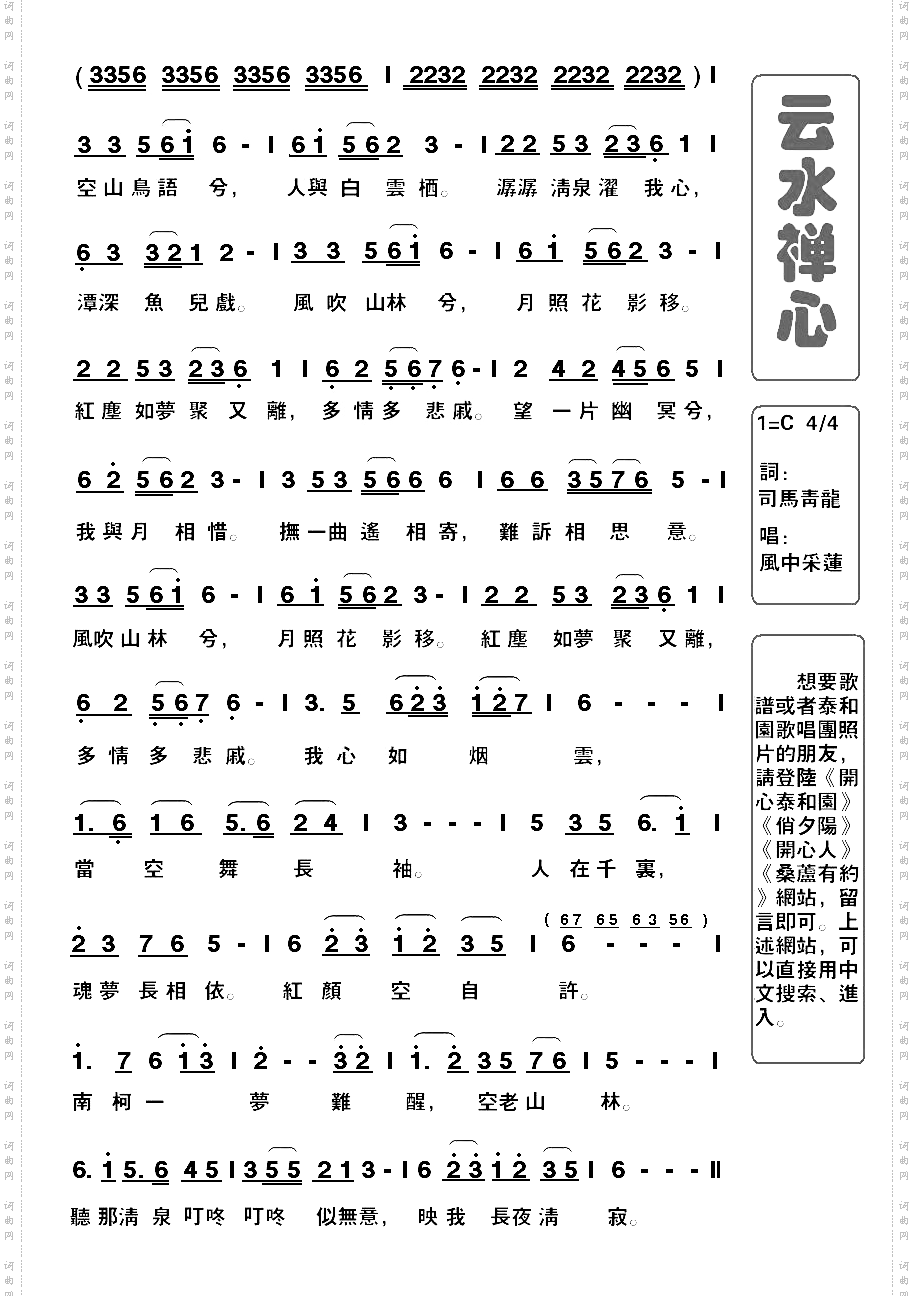 (3356 3356 3356 3356 | 2232 2232 2232 2232)|
3 3 5 6i 6 - | 6i 562 3 - | 22 53 236 1 |
空山鳥語 兮， 人與白 雲栖。 潺潺 清泉濯 我心，
6 3 321 2 - | 3 3 56i 6 - | 6i 562 3 - |
潭深 魚 兒戲。 風吹 山林 兮， 月照花 影移。
2 2 53 236 1 | 62 5676 - | 2 42 4565 |
紅塵 如夢 聚 又離， 多情多 悲戚。 望 一片幽 冥兮，
6 2 562 3 - | 3 53 566 6 | 66 3576 5 - |
我與月 相惜。 撫一曲遙 相寄， 難訴相思 意。
33 56i 6 - | 6i 562 3 - | 22 53 236 1 |
風吹山林 兮， 月照花 影移。 紅塵 如夢 聚 又離，
6 2 567 6 - | 3. 5 623 i27 | 6 - - - |
多情 多 悲戚。 我心如 烟 雲，
1. 6 1 6 5. 6 2 4 | 3 - - - | 5 35 6. i |
當 空 舞 長 袖。 人 在千裏，
(67 65 63 56)
2 3 7 6 5 - | 6 23 i2 35 | 6 - - - |
魂夢 長相 依。 紅 顏 空 自 許。
i. 7 6 i3 | 2 - - 32 | i. 2 35 76 | 5 - - - |
南 柯一 夢 難 醒， 空老山 林。
6. i 5. 6 45 | 355 213 - | 6 23 i2 35 | 6 - - - ||
聽那清 泉 叮咚 叮咚 似無意， 映我 長夜清 寂。
云水禅心
1=C 4/4
詞：
司馬青龍
唱：
風中采蓮
想要歌
譜或者泰和
園歌唱團照
片的朋友，
請登陸《開
心泰和園》
《俏夕陽》
《開心人》
《桑蘆有約
》網站，留
言即可。上
述網站，可
以直接用中
文搜索、進
入。
词曲网